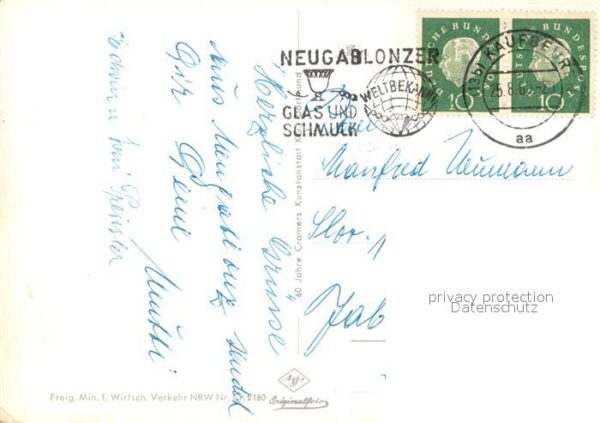 NEUGABLONZER
WELTBEKANNT
GLAS UND
SCHMUCK
DEUTSCHE BUNDESPOST
10
DEUTSCHE BUNDESPOST
10
KAUFBEUREN
25.8.6
aa
"Herzliche Grüsse"
aus Neugablonz sendet
Dir Deine Mutti
Manfred Neumann
privacy protection
Datenschutz
60 Jahre Cramers Kunstanstalt KG, Dortmund
Agfa
Originalfoto
Freig. Min. f. Wirtsch. Verkehr NRW Nr. 2180